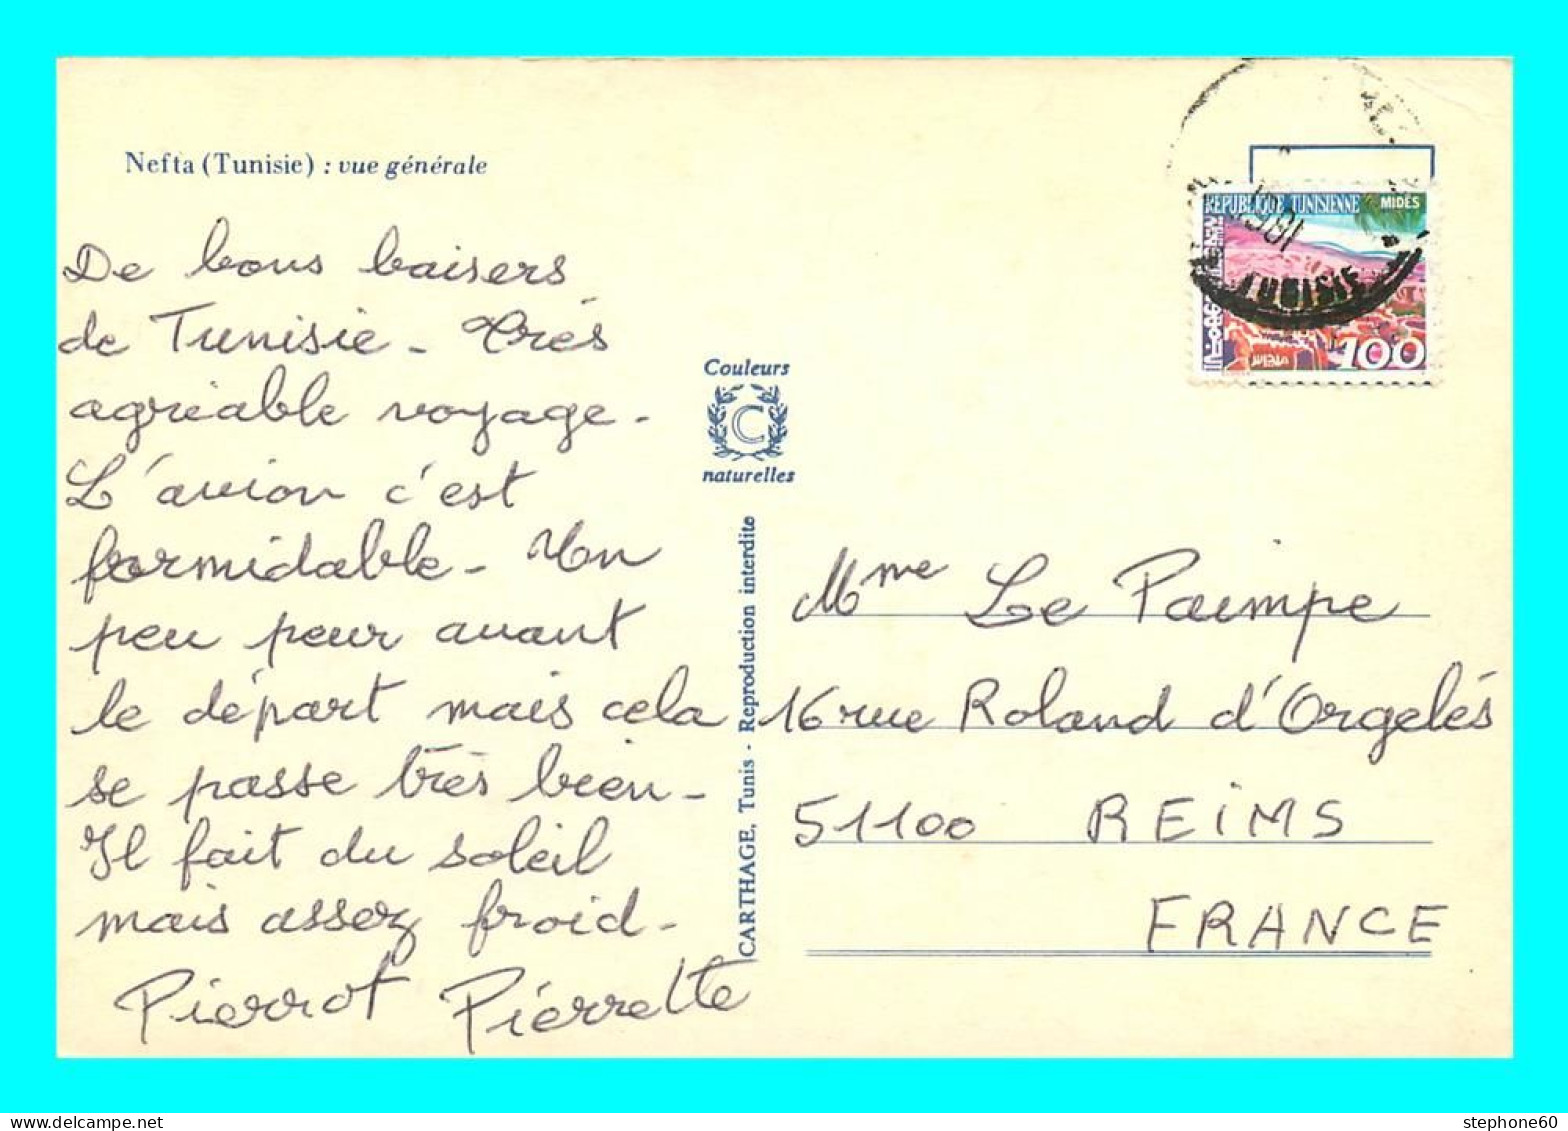 Nefta (Tunisie) : vue générale
De bons baisers
de Tunisie - Très
agréable voyage -
L'avion c'est
formidable - Un
peu peur avant
le départ mais cela
se passe très bien -
Il fait du soleil
mais assez froid -
Pierrot Pierrette
Couleurs
C
naturelles
CARTHAGE, Tunis - Reproduction interdite
REPUBLIQUE TUNISIENNE MIDES
1981
TUNISIE
100
Mme Le Paimpe
16 rue Roland d'Orgelés
51100 REIMS
FRANCE
stephone60